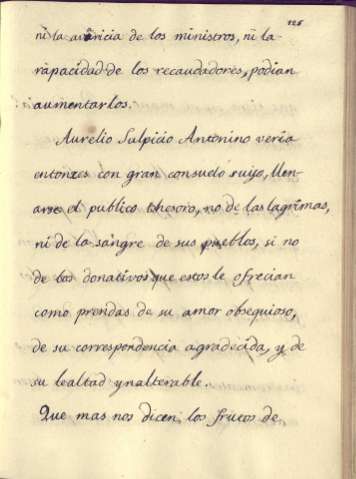 126
ni la avaricia de los ministros, ni la
rapacidad de los recaudadores, podian
aumentarlos.
Aurelio Sulpicio Antonino veria
entonzes con gran consuelo suyo, llen-
arse el publico thesoro, no de las lagrimas,
ni de la sangre de sus pueblos, si no
de los donativos que estos le ofrecian
como prendas de su amor obsequioso,
de su correspondencia agradecida, y de
su lealtad ynalterable.
Que mas nos dicen los frutos de